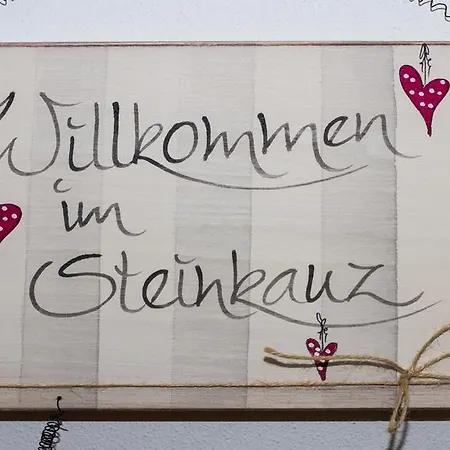 Willkommen
im
Steinkauz